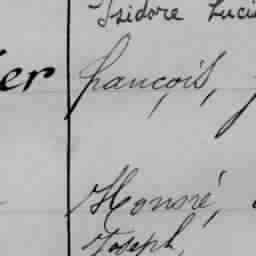 Isidore Luci
er françois,
Honoré,
Joseph,